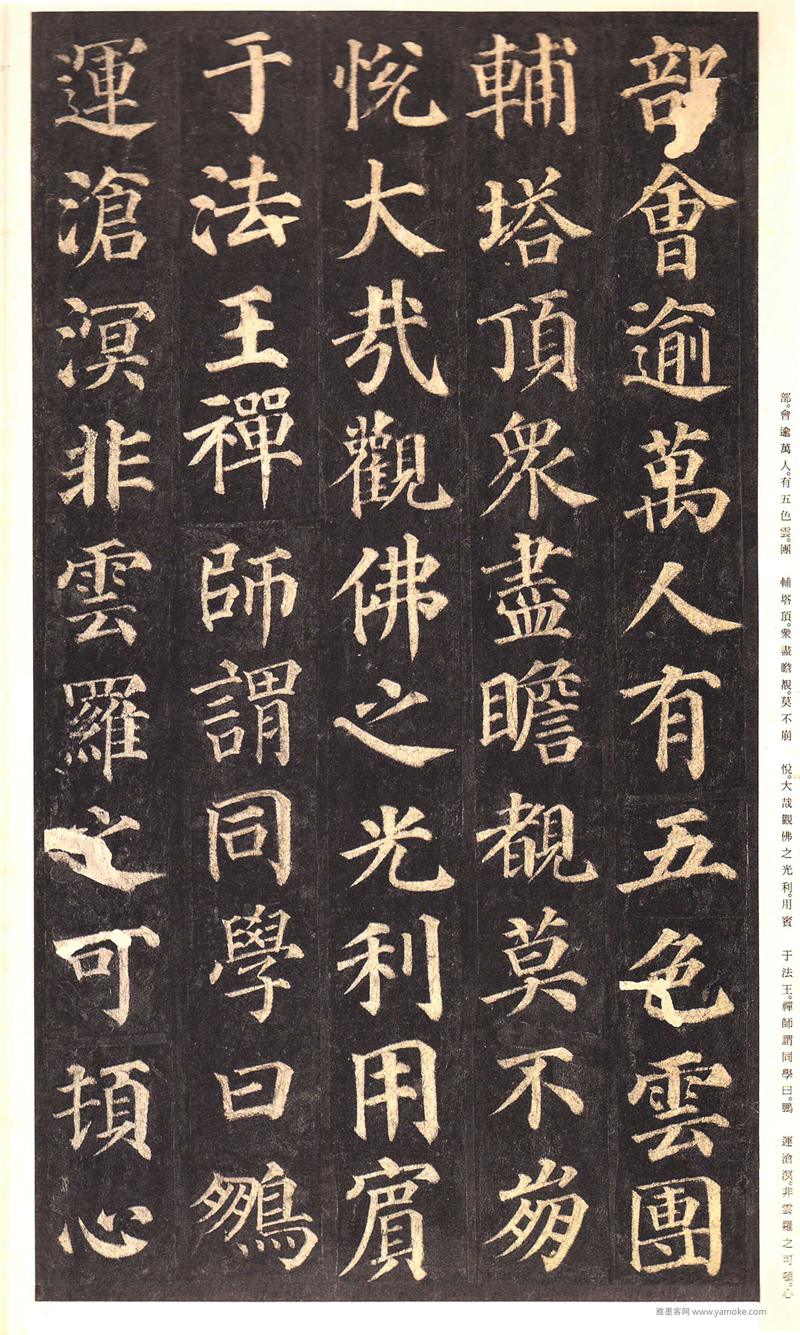 部。會逾萬人。有五色雲。團　輔塔頂。衆盡瞻覩。莫不崩　悅。大哉觀佛之光利。用賓　于法王。禪師謂同學曰。鵬　運滄溟。非雲羅之可頓。心
部會逾萬人有五色雲團
輔塔頂衆盡瞻覩莫不崩
悅大哉觀佛之光利用賓
于法王禪師謂同學曰鵬
運滄溟非雲羅之可頓心
雅墨客网 www.yamoke.com